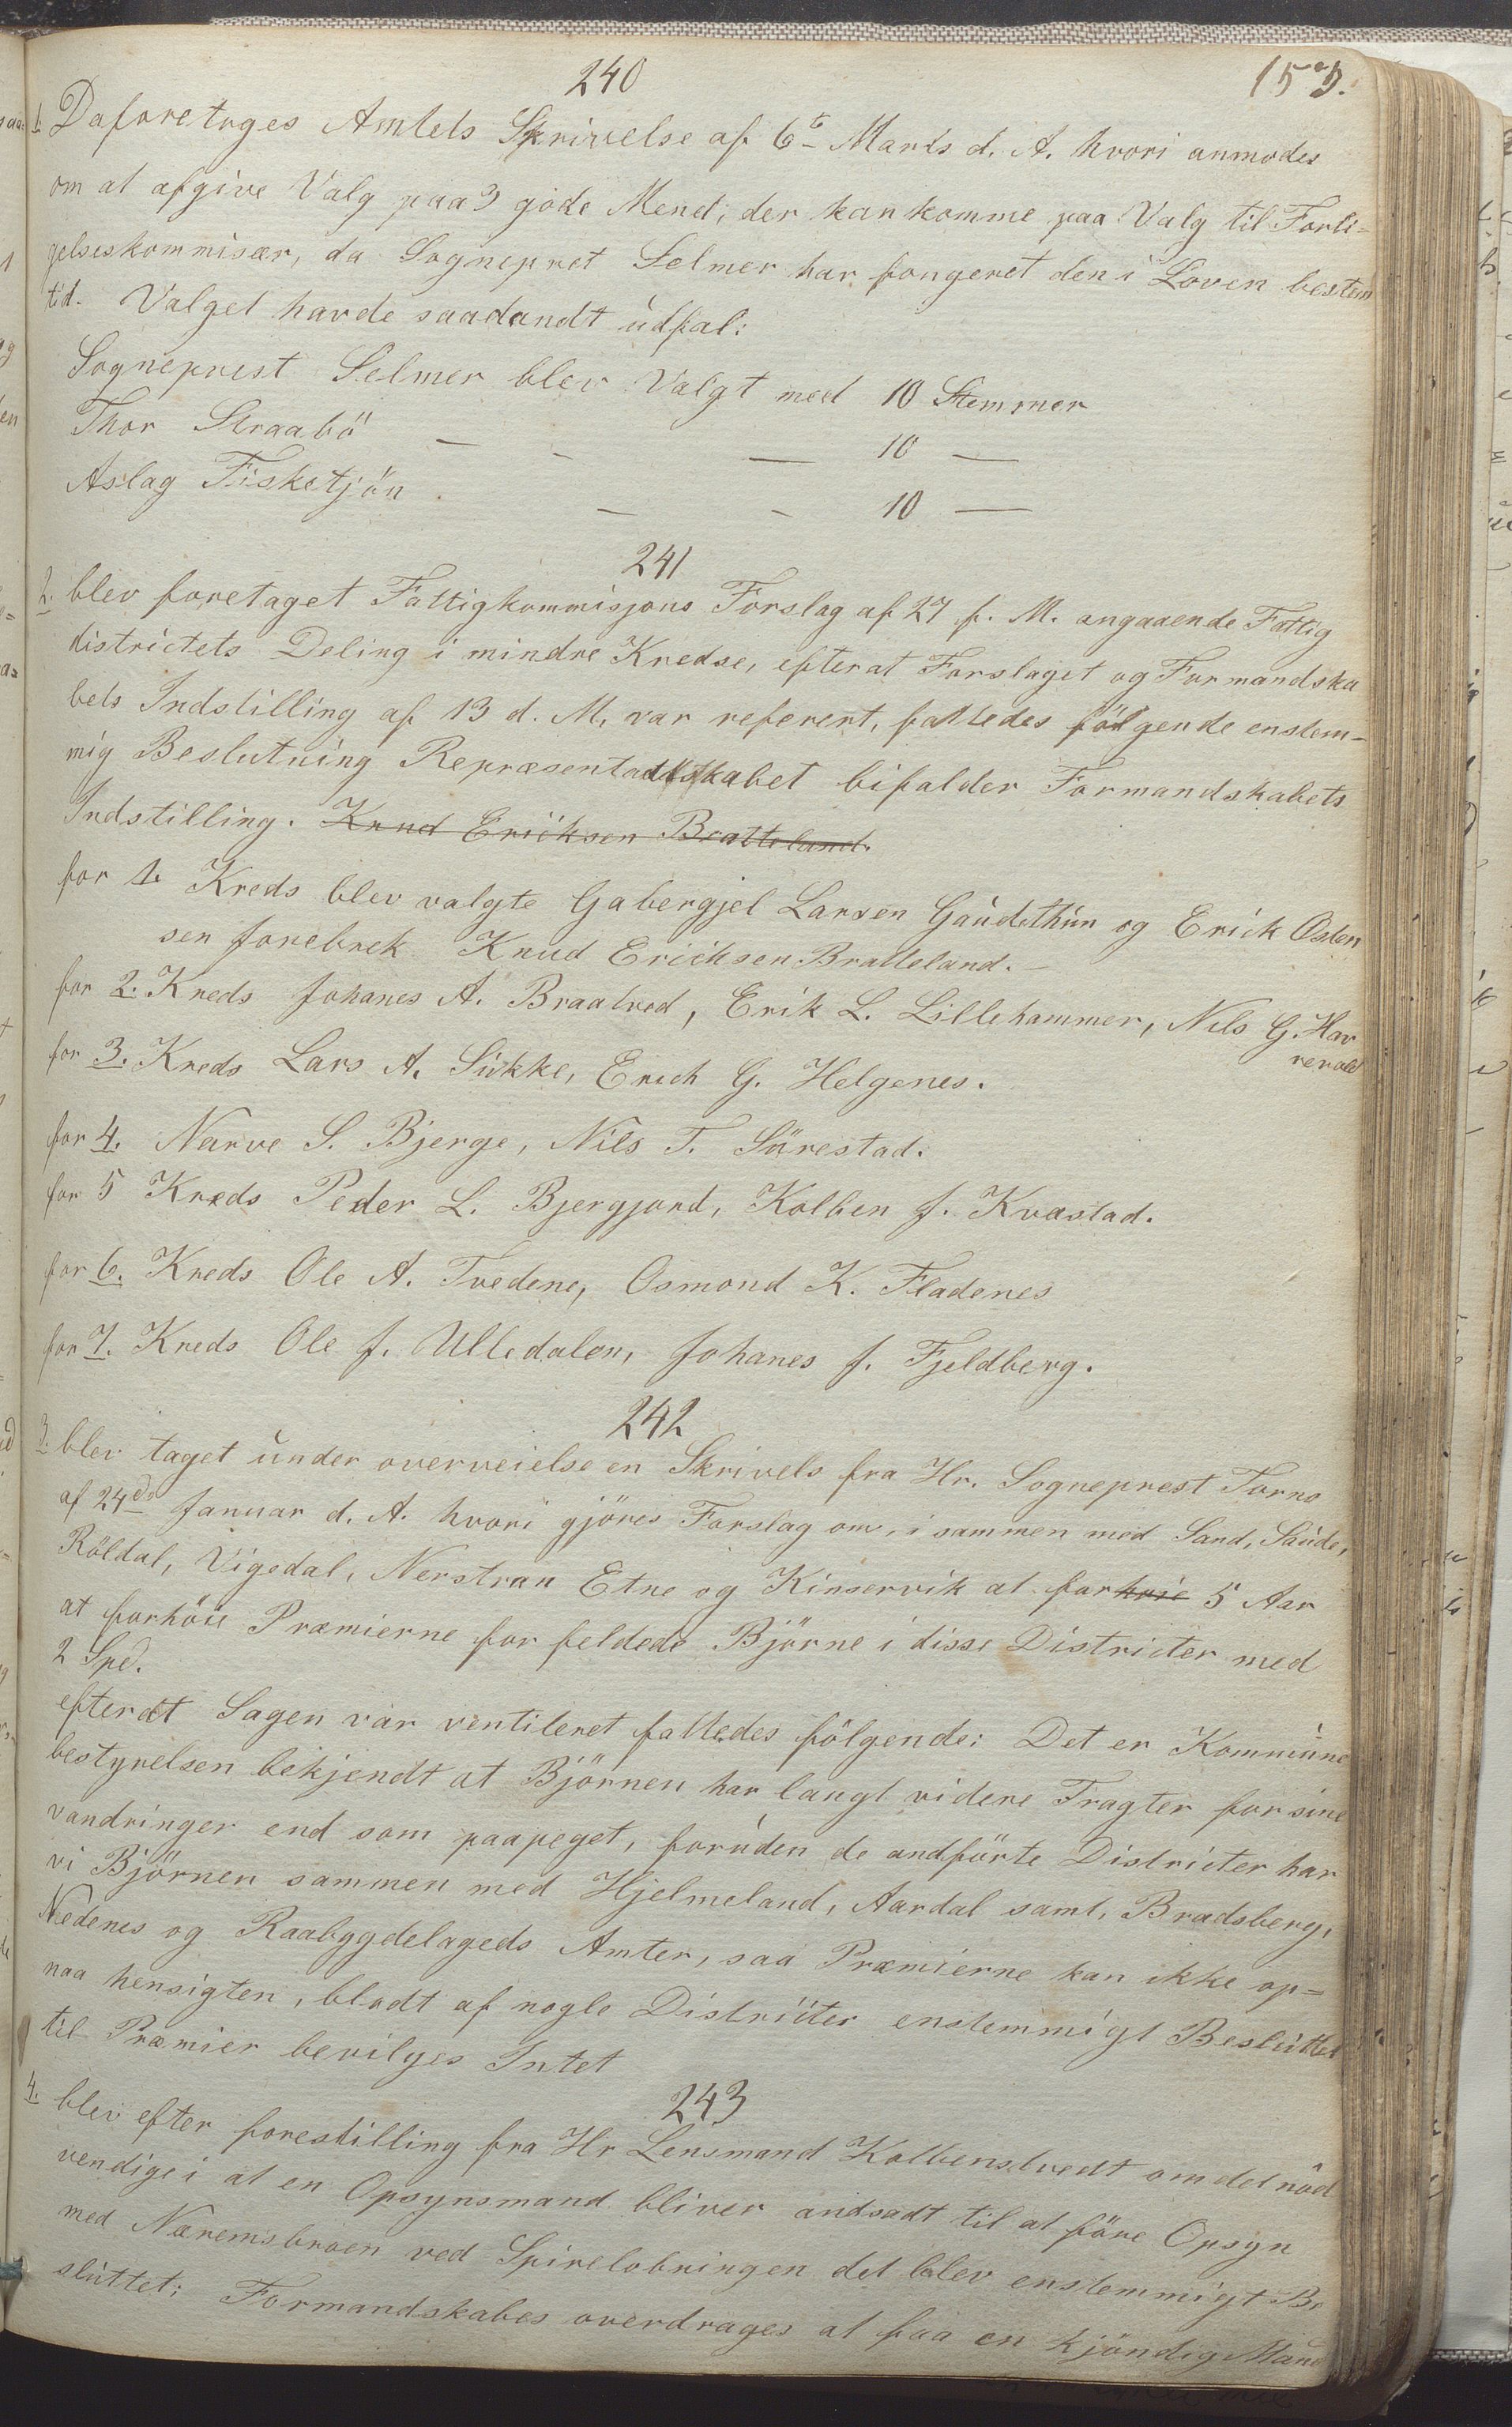 240
153.
1. Daforetoges Amtets Skrivelse af 6te Marts d. A. hvori anmodes
om at afgive Valg paa 3 gode Mend, der kan komme paa Valg til Forli-
gelseskommisær, da Sognepret Selmer har fongeret den i Loven bestem
tid. Valget havde saadandt udfal:
Sogneprest Selmer blev Valgt med 10 Stemmer
Thor Straabö — - — 10 —
Aslag Fisketjön — - 10 —
241
2. blev foretaget Fattigkommisjons Forslag af 27 f. M. angaaende Fattig
districtets Deling i mindre Kredse, efterat Forslaget og Formandska
bets Indstilling af 13 d. M, var referert, fattedes fölgende enstem-
mig Beslutning Repræsentadskabet bifalder Formandskabets
Indstilling. Knud Ericksen Bratteland.
for 1. Kreds blev valgte Gabergjel Larsen Gaudethun og Erick Osten
sen forebrek Knud Erichsen Bratteland.—
for 2. Kreds Johanes A. Braatved, Erik L. Lillehammer, Nils G. Hav
revold
for 3. Kreds Lars A. Sukke, Erich G. Helgenes.
for 4. Narve S. Bjerge, Nils T. Sörestad.
for 5 Kreds Peder L. Bjergjord, Kolben J. Kvæstad.
for 6. Kreds Ole A. Tvedene, Osmond K. Fladenes
for 7. Kreds Ole J. Ulledalen, Johanes J. Fjeldberg.
242
3. blev taget under overveielse en Skrivels fra Hr. Sogneprest Torns
af 24de Januar d. A. hvori gjöres Forslag om, i sammen med Sand, Saude,
Röldal, Vigedal, Nerstran Etne og Kinservik at forhoie 5 Aar
at forhöie Præmierne for feldede Björne i disse Districter med
2 Spd.
efterat Sagen var ventileret fattedes fölgende: Det er Kommune
bestyrelsen bekjendt at Björnen har langt videre Tragter for sine
vandringer end som paapeget, foruden de andförte Districter har
vi Björnen sammen med Hjelmeland, Aardal samt, Bradsberg,
Nedenes og Raabygdelageds Amter, saa Præmierne kan ikke op-
naa hensigten, blodt af nogle Districter enstemmigt Besluttet
til Præmier bevilges Intet
243
4. blev efter forestilling fra Hr Lensmand Kolbenstvedt om det nöd
vendige i at en Opsynsmand bliver andsadt til at före Opsyn
med Næremsbroen ved Spirelobningen det blev enstemmigt Be
sluttet: Formandskabes overdrages at faa en kjöndig Mand